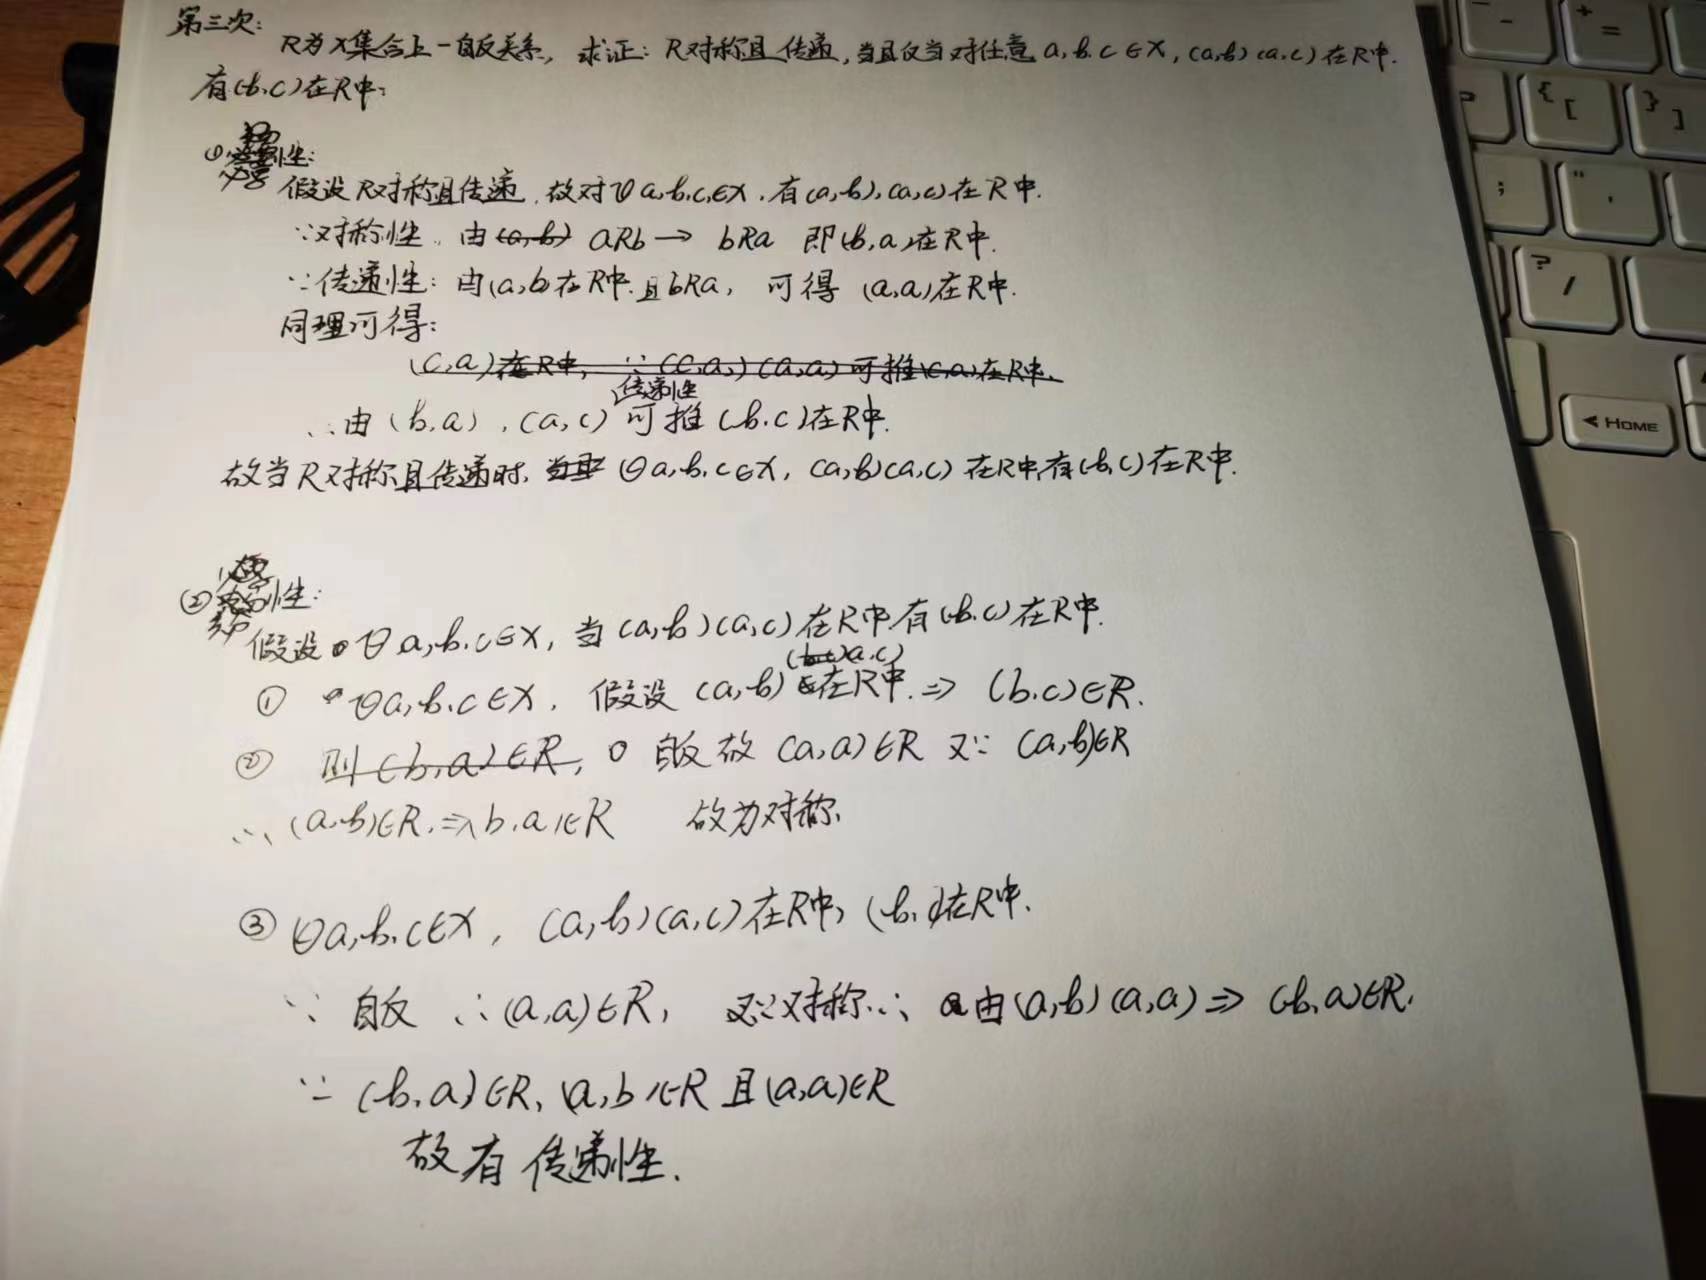 第三次:
R为X集合上一自反关系, 求证: R对称且传递,当且仅当对任意 a,b.c∈X, (a,b) (a,c) 在R中.
有(b.c)在R中:
①性:
假设R对称且传递,故对∀a,b,c,∈X,有(a,b),(a,c)在R中.
∵对称性, 由(a,b) aRb → bRa 即(b,a)在R中.
∵传递性: 由(a,b)在R中.且bRa, 可得 (a,a)在R中.
同理可得:
(c,a)在R中, ∵ (c,a,) (a,a) 可推(c,a)在R中.
传递性
∴由 (b,a) , (a,c) 可推 (b.c)在R中.
故当R对称且传递时, 当且 ∀a,b,c∈X, (a,b)(a,c) 在R中,有(b,c)在R中.
②性:
假设 ∀a,b.c∈X, 当(a,b)(a,c)在R中有(b.c)在R中.
a.c)
① ∀a,b.c∈X, 假设 (a,b) 在R中. ⇒ (b.c)∈R.
② 则(b,a)∈R, 自反 故 (a,a)∈R 又∵ (a,b)∈R
∴ (a,b)∈R.⇒(b.a)∈R 故为对称.
③ ∀a,b.c∈X, (a,b)(a,c)在R中, (b, )在R中.
∵ 自反 ∴(a,a)∈R, 又∵对称∴ 由(a,b)(a,a) ⇒ (b,a)∈R.
∵ (b,a)∈R, (a,b)∈R 且(a,a)∈R
故有 传递性.
{ [
} ]
" '
;
? /
+ =
◄ HOME